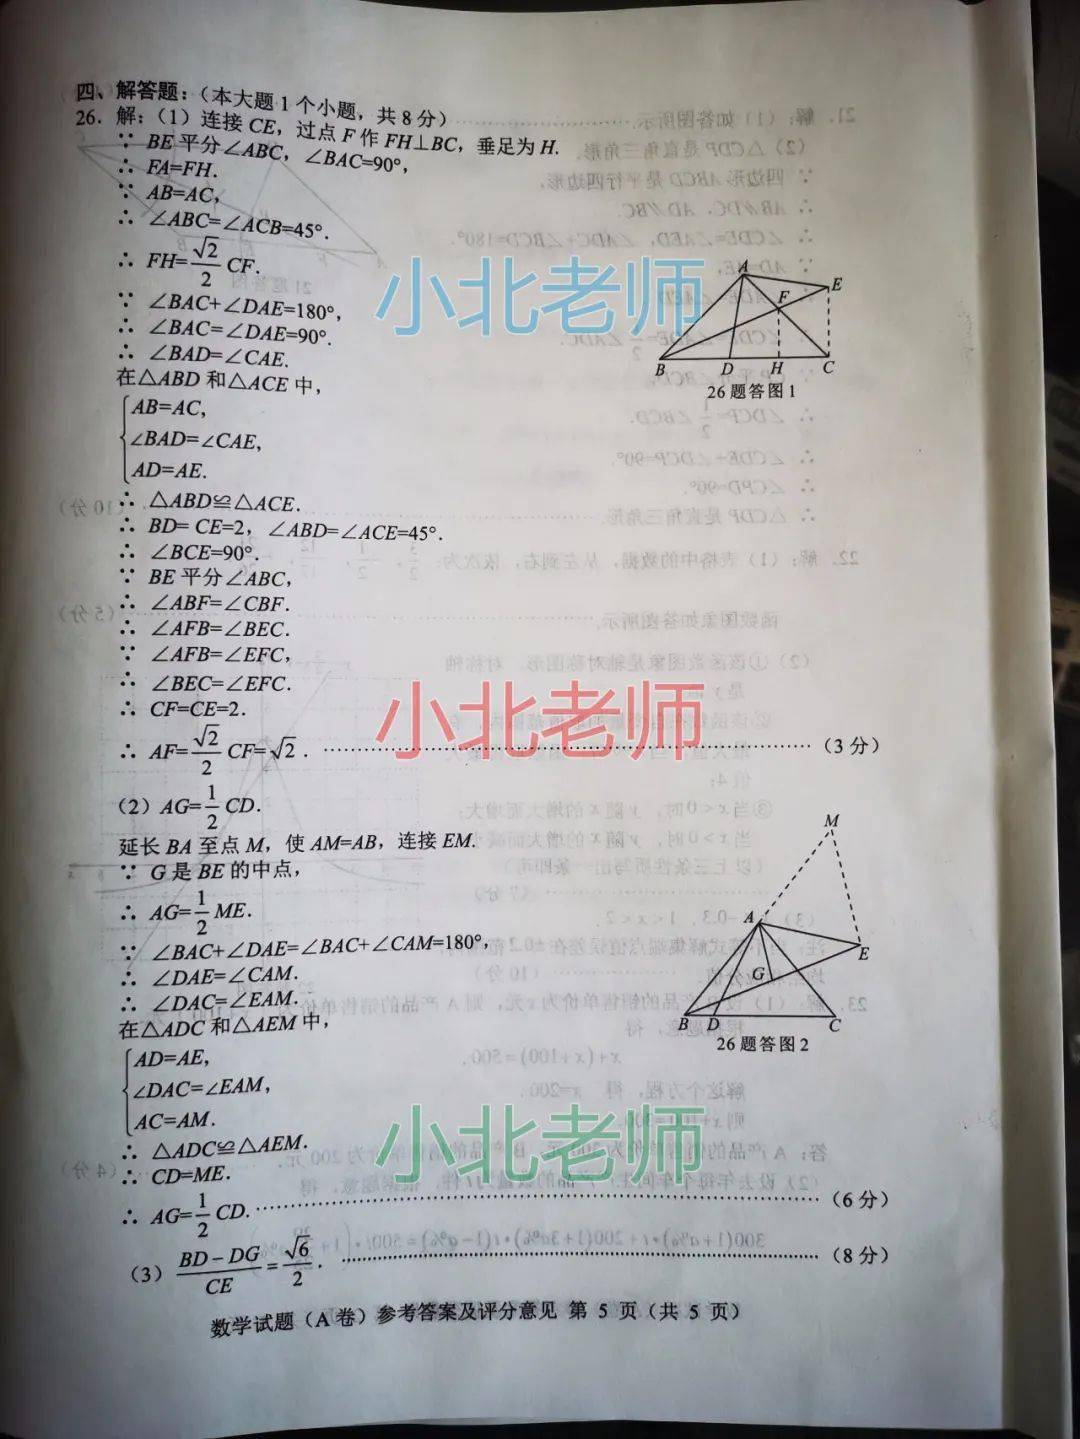 四、解答题：（本大题1个小题，共8分）
26．解：（1）连接CE，过点F作FH⊥BC，垂足为H.
∵ BE平分∠ABC，∠BAC=90°，
∴ FA=FH.
∵ AB=AC，
∴ ∠ABC=∠ACB=45°.
∴ FH=√2/2 CF.
∵ ∠BAC+∠DAE=180°，
∴ ∠BAC=∠DAE=90°.
∴ ∠BAD=∠CAE.
在△ABD和△ACE中，
AB=AC,
∠BAD=∠CAE,
AD=AE.
∴ △ABD≌△ACE.
∴ BD= CE=2，∠ABD=∠ACE=45°.
∴ ∠BCE=90°.
∵ BE平分∠ABC，
∴ ∠ABF=∠CBF.
∴ ∠AFB=∠BEC.
∵ ∠AFB=∠EFC，
∴ ∠BEC=∠EFC.
∴ CF=CE=2.
∴ AF=√2/2 CF=√2 . ……（3分）
A
E
F
B D H C
26题答图1
（2）AG=1/2 CD.
延长BA至点M，使AM=AB，连接EM.
∵ G是BE的中点，
∴ AG=1/2 ME.
∵ ∠BAC+∠DAE=∠BAC+∠CAM=180°，
∴ ∠DAE=∠CAM.
∴ ∠DAC=∠EAM.
在△ADC和△AEM中，
AD=AE,
∠DAC=∠EAM,
AC=AM.
∴ △ADC≌△AEM.
∴ CD=ME.
∴ AG=1/2 CD. ……（6分）
M
A
E
G
B D C
26题答图2
（3）(BD－DG)/CE=√6/2 . ……（8分）
数学试题（A卷）参考答案及评分意见 第 5 页（共 5 页）
小北老师
小北老师
小北老师